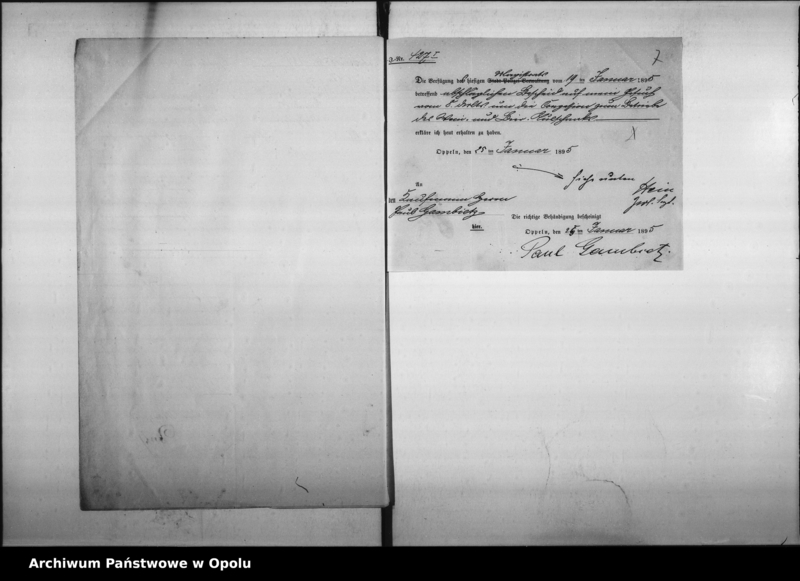 7
J.-Nr. 427 I
Magistrats
Die Verfügung des hiesigen Stadt-Polizei-Verwaltung vom 19 ten Januar 1895
betreffend abschläglichen Bescheid auf mein Gesuch
vom 5. dess. um die Concession zum Betriebe
des Wein- und Bier-Ausschanks
erkläre ich heut erhalten zu haben.
Oppeln, den 25 ten Januar 1895
siehe unten
An
den Kaufmann Herrn
Paul Gambietz
hier.
Hein
Die richtige Behändigung bescheinigt
Oppeln, den 25 ten Januar 1895
Paul Gambietz.
Archiwum Państwowe w Opolu